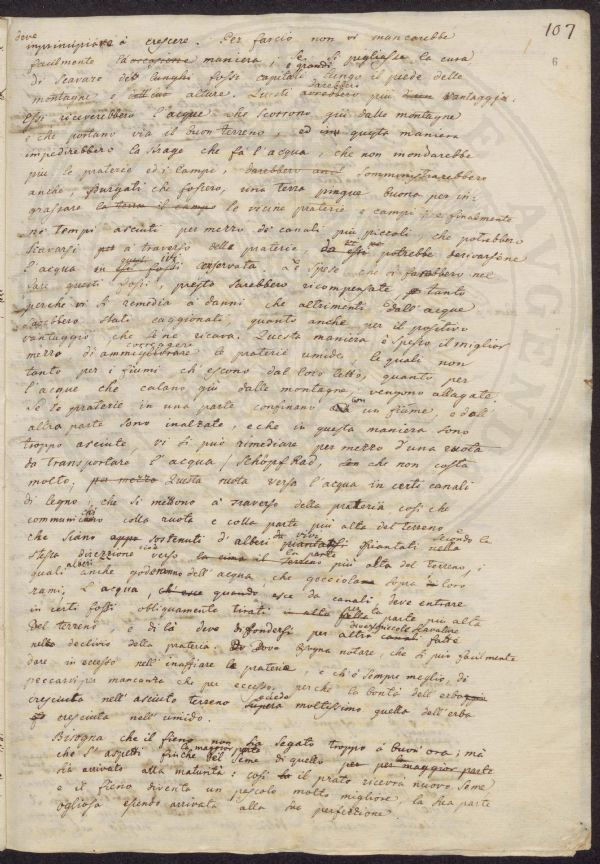 107
6
deve
imprincipiare à crescere. Per farciò non vi mancarebbe
facilmente l'occasione maniera, se si pigliasse la cura
e grandi
di scavare dei lunghi fossi capitali lungo il piede delle
darebbero
montagne e alture. Questi avrebbero più vantaggi:
Essi riceverebbero l'acque che scorrono giù dalle montagne
e che portano via il buon terreno, ed in questa maniera
impedirebbero la strage che fà l'acqua, che non mondarebbe
più le praterie ed i campi, darebbero anc somministrarebbero
anche, spurgati che fossero, una terra pingue buona per in-
grassare la terra il campo le vicine praterie e campi; e finalmente
ne' tempi asciuti per mezzo de' canali più piccoli, che potrebbero
scavarsi per a traverso delle praterie, potrebbe derivarsene
questi ivi
l'acqua in essi fossi conservata. Le spese che si farebbero nel
fare questi fossi, presto sarebbero ricompensate, tanto
perche vi si remedia à danni che altrimenti dall'acque
sarebbero stati caggionati, quanto anche per il positivo
vantaggio che se ne ricava. Questa maniera è spesso il miglior
correggere
mezzo di ammigliorare le praterie umide, le quali non
tanto per i fiumi ch'escono dal loro letto, quanto per
l'acque che calano giù dalle montagne, vengono allagate.
Se le praterie in una parte confinano con un fiume, e dall'
altra parte sono inalzate, e che in questa maniera sono
troppo asciute, vi si può rimediare per mezzo d'una ruota
da transportare l'acqua /Schöpf Rad, che non costa
molto; per mezzo Questa ruota versa l'acqua in certi canali
di legno, che si mettono à traverso della prateria così che
communichino colla ruota e colla parte più alta del terreno
che siano appo sostenuti d'alberi piantati secondo la
stessa direzzione verso la cima il terreno la parte più alta del terreno, i
alberi
quali anche goderanno dell'acqua, che gocciola sopra i loro
rami, L'acqua, ch esce quando esce da canali deve entrare
in certi fossi obliquamente tirati nella parte più alta
del terreno e di là deve diffondersi per altri canali fatti
diverse piccole scavature
nelle declivio della prateria. Dove bisogna notare, che si può facilmente
dare in eccesso nell'inaffiare le praterie, e ch'è sempre meglio, di
peccarsi per mancanza che per eccesso, perche la bontà dell'erba
cresciuta nell'asciuto terreno supera moltissimo quella dell'erba
cresciuta nell'umido.
Bisogna che il fieno non sia segato troppo à buon'ora; mà
la maggior parte
che s'aspetti finche del seme di quello per la maggior parte
sia arrivato alla maturità: così il prato riceverà nuovo seme
e il fieno diventa un pascolo molto migliore, la sua parte
ogliosa essendo arrivata alla sua perfezzione.